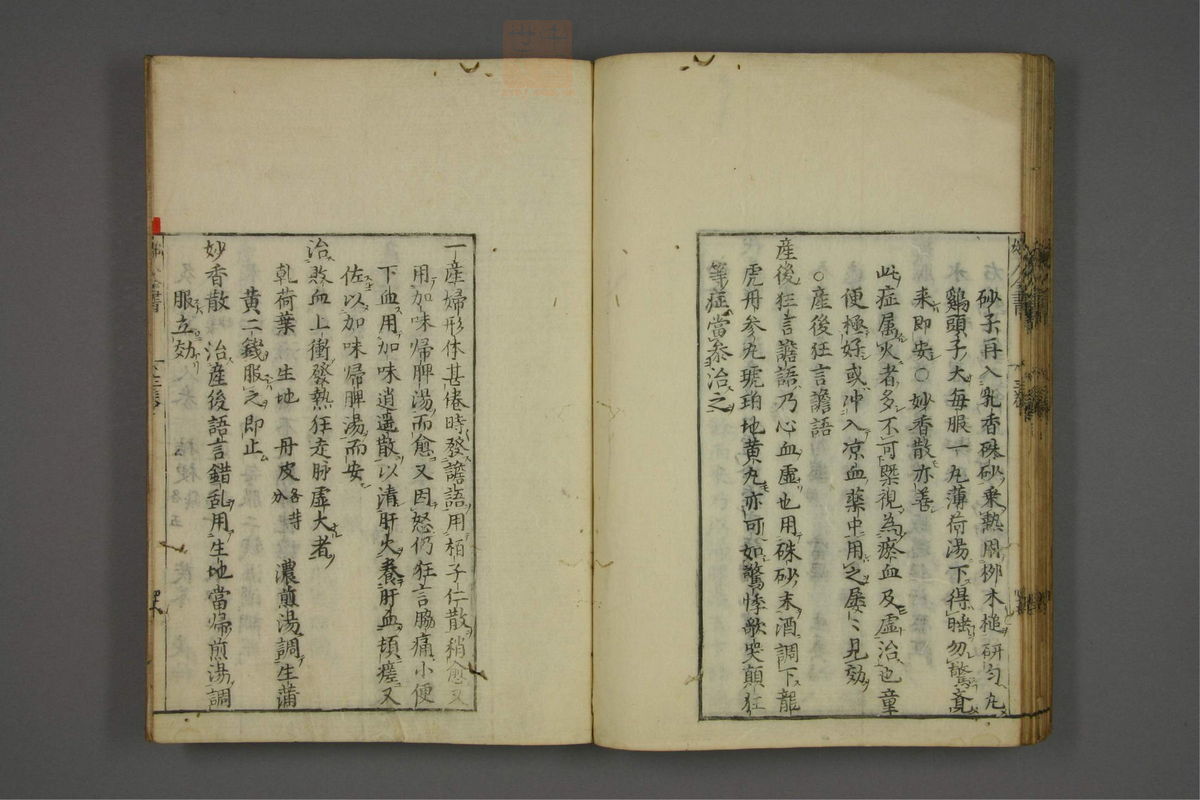 砂子再入乳香硃砂乗熱用柳木槌研匀丸
鷄頭子大每服一丸薄荷湯下得睡勿驚寤
来即安○妙香散亦善
此症属火者多不可槩視為瘀血及虚治也童
便極好或冲入凉血藥中用之屡〻見効
○産後狂言譫語
産後狂言譫語乃心血虚也用硃砂末酒調下龍
虎丹参丸琥珀地黄丸亦可如驚悸歌哭顛狂
等症當叅治之
一産婦形体甚倦時發譫語用栢子仁散稍愈又
用加味帰脾湯而愈又因怒仍狂言脇痛小便
下血用加味逍遥散以清肝火養肝血頓瘥又
佐以加味帰脾湯而安
治敗血上衝發熱狂走脉虚大者
乹荷葉 生地 丹皮各等分 濃煎湯調生蒲
黄二錢服之即止
妙香散 治産後語言錯乱用生地當帰煎湯調
服立効